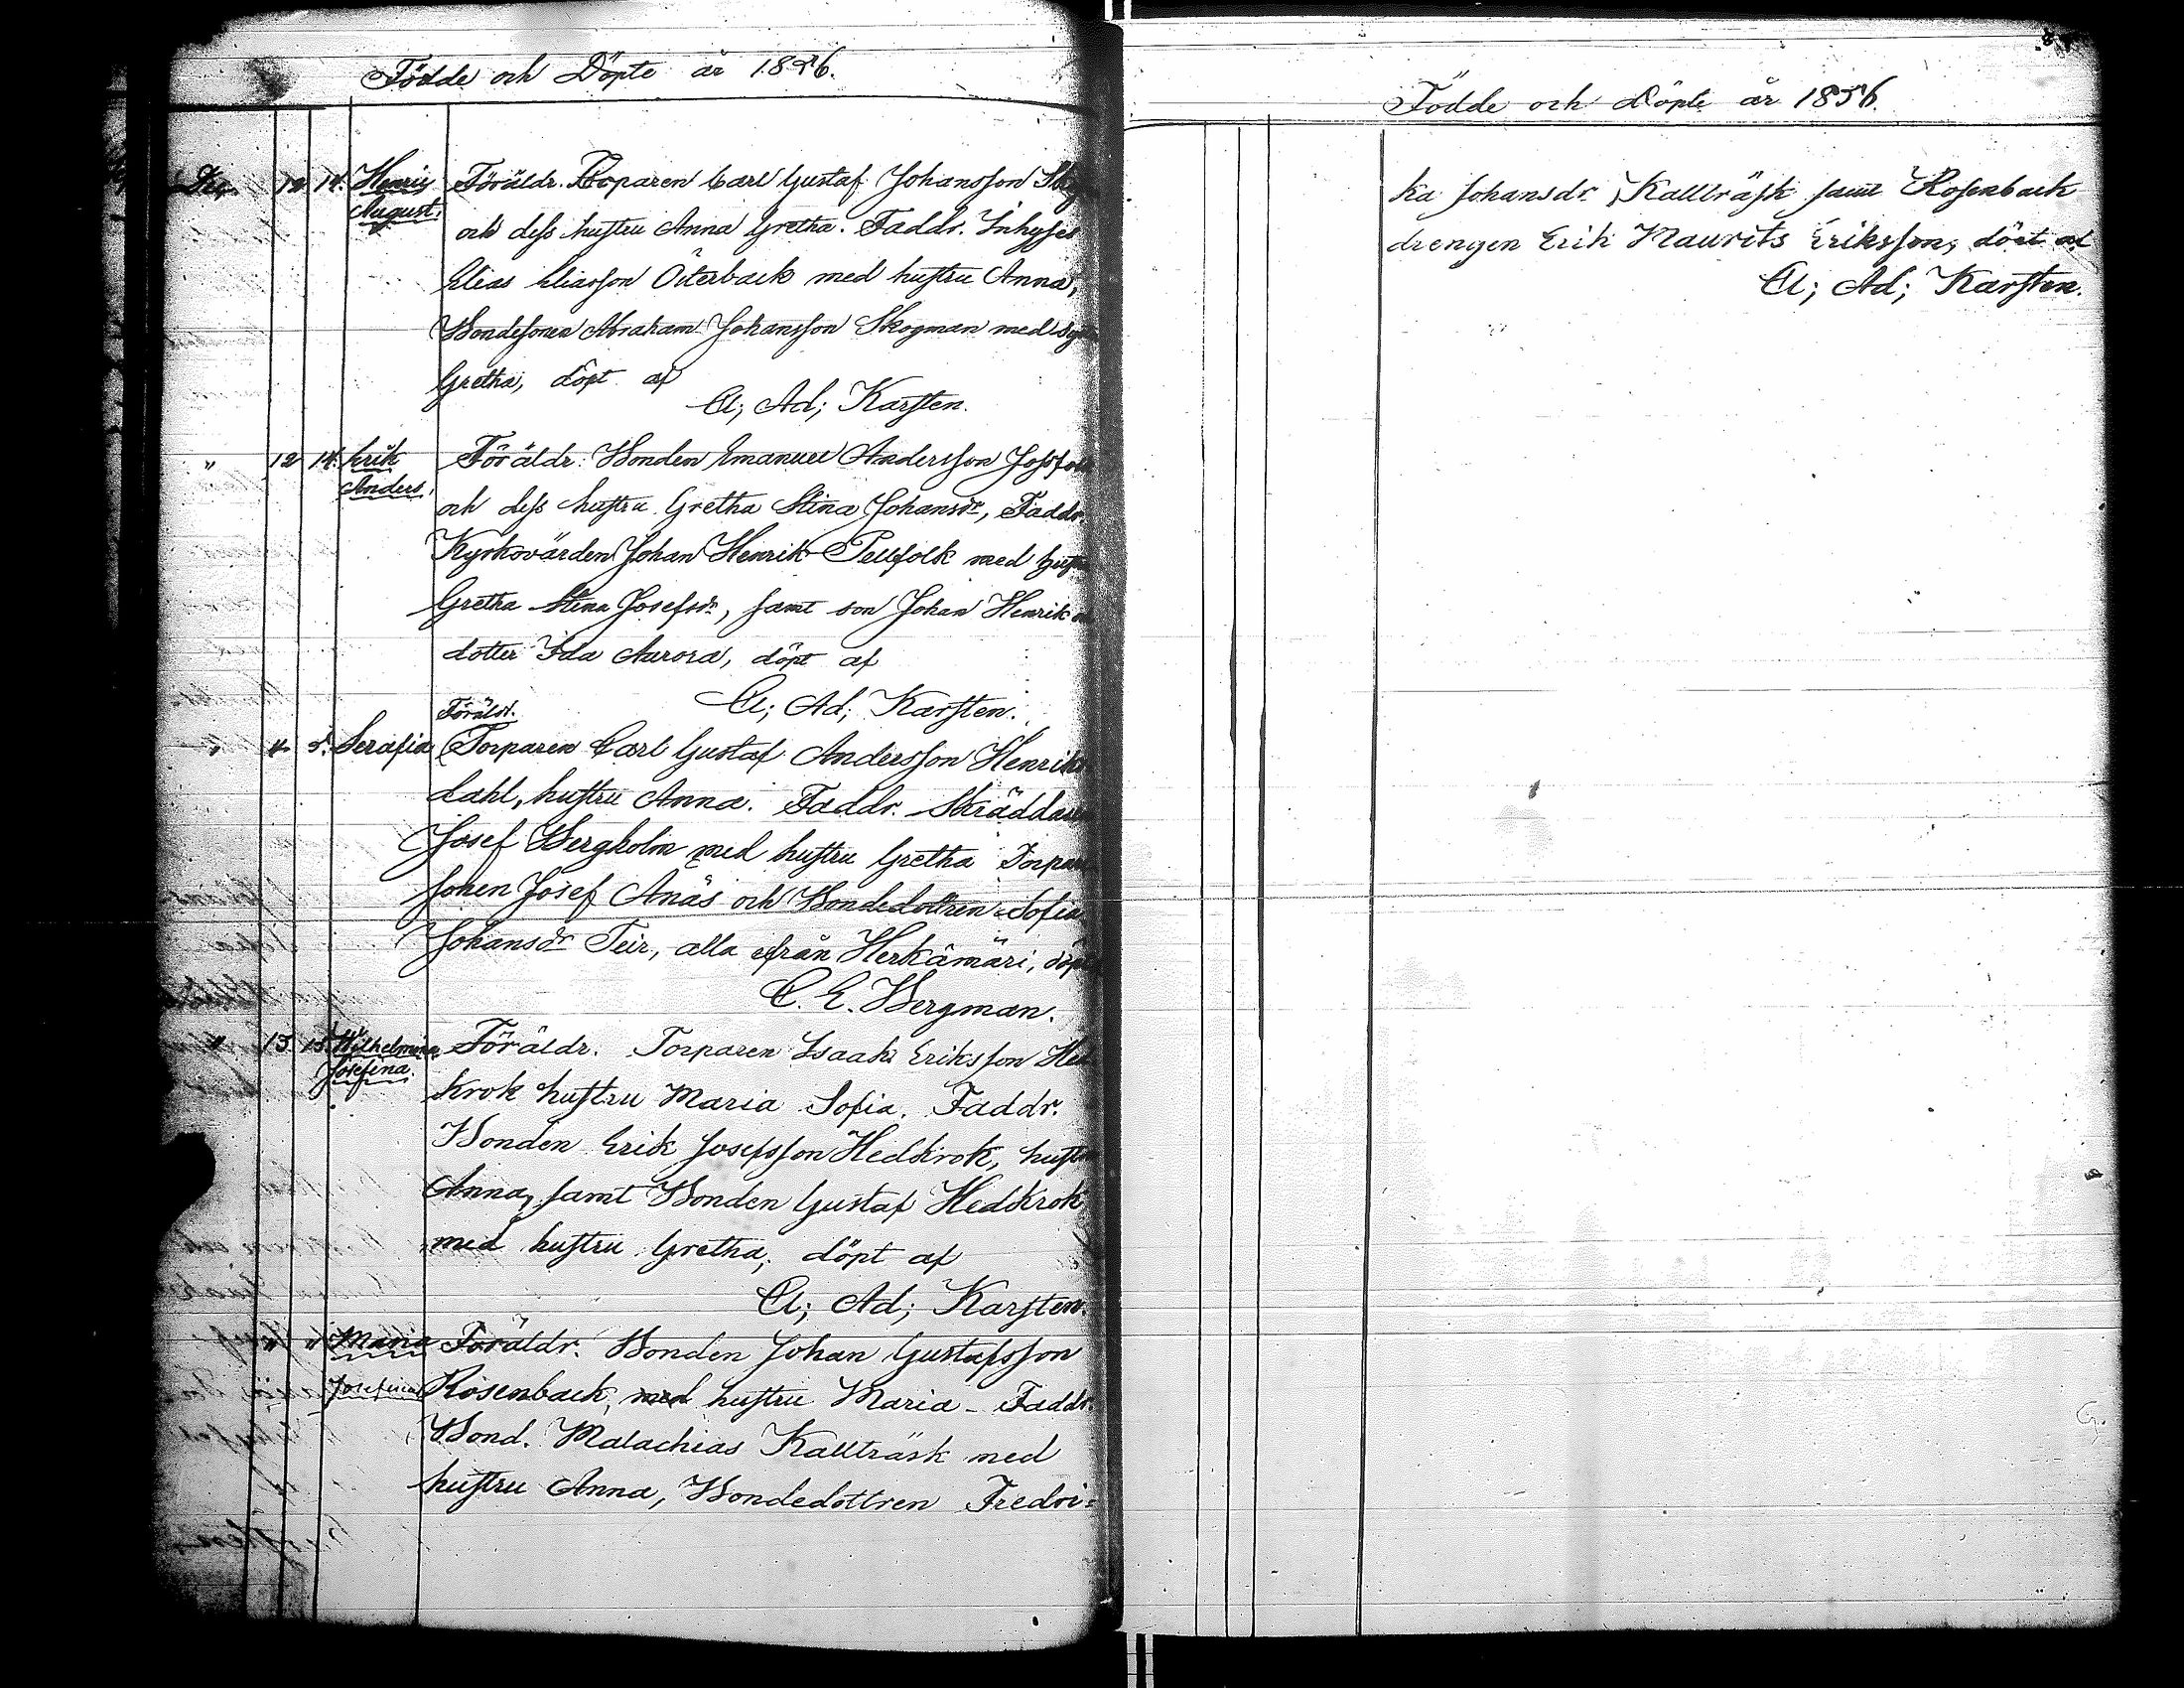 Födde och Döpte år 1856.
Dec. 12 14. Henric August. Föräldr. Torparen Carl Gustaf Johansson
och dess hustru Anna Gretha. Faddr. Inhyses
Elias Eliasson Österback med hustru Anna,
Bondesonen Abraham Johansson Skogman med
Gretha, döpt af
Cl; Ad; Karsten.
" 12 14. Erik Anders. Föräldr. Bonden Emanuel Andersson
och dess hustru Gretha Stina Johansdr, Faddr.
Kyrkovärden Johan Henrik Pellfolk med hustru
Gretha Stina Josefsdr, samt son Johan Henrik
dotter Ida Aurora, döpt af
Cl; Ad; Karsten.
Föräldr.
" 4. 5. Serafia Torparen Carl Gustaf Andersson Henriks
dahl, hustru Anna. Faddr. Skräddaren
Josef Bergholm med hustru Gretha Torpare
sonen Josef Anäs och Bondedottren Sofia
Johansdr Teir, alla från Herkämäri, döpt
C. E. Bergman.
" 13 15. Wilhelmina Josefina. Föräldr. Torparen Isaak Eriksson Hed
krok hustru Maria Sofia. Faddr.
Bonden Erik Josefsson Hedkrok, hustru
Anna, samt Bonden Gustaf Hedkrok
med hustru Gretha, döpt af
Cl; Ad; Karsten.
" " Maria Föräldr. Bonden Johan Gustafsson
Josefina Rosenback, med hustru Maria - Faddr.
Bond. Malachias Kallträsk med
hustru Anna, Bondedottren Fredri=
Födde och Döpte år 1856.
ka Johansdr. Kallträsk samt Rosenback
drengen Erik Maurits Eriksson, döpt af
Cl; Ad; Karsten.